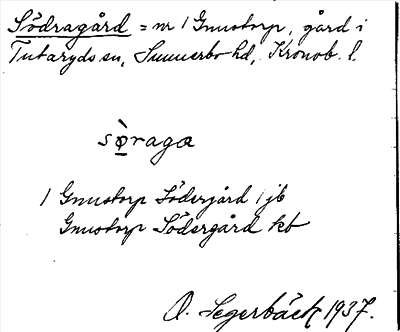 Södragård = nr 1 Gnustorp, gård i
Tutaryds sn, Sunnerbo hd, Kronob. l.
sø̀raga
1 Gnustorp Södergård 1 jb
Gnustorp Södergård kb
O. Segerbäck 1937.